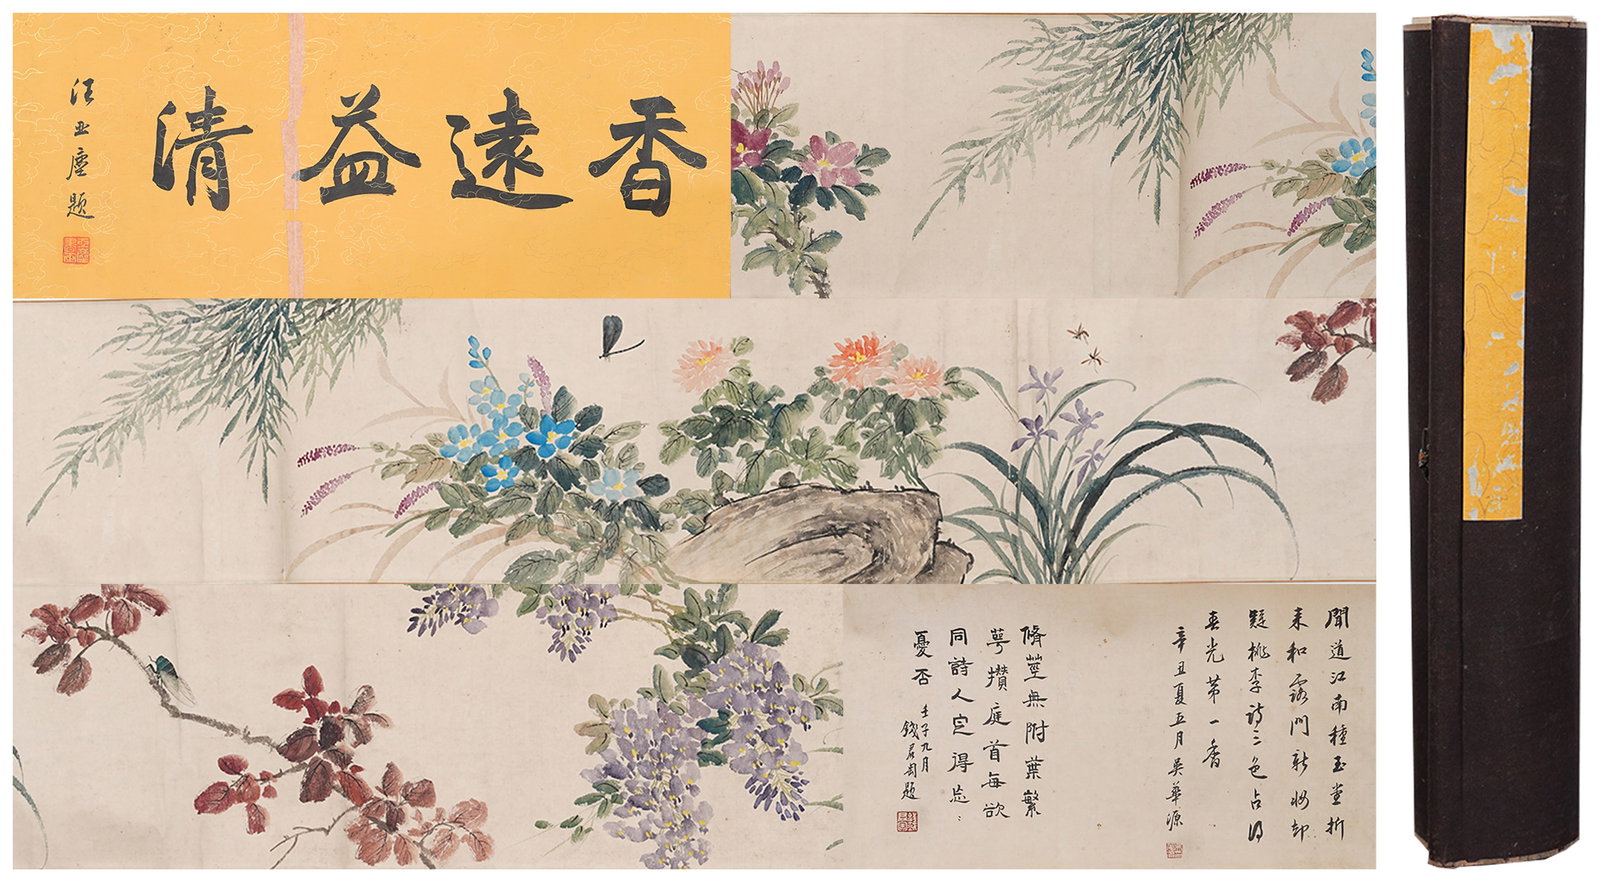 香遠益清
汪亞塵題
聞道江南種玉堂折
来和露門新妝却
疑桃李誇三色占得
春光第一香
辛丑夏五月吴華源
脩莖無附葉繁
萼攢庭首每欲
同詩人定得忘
憂否
壬子九月
錢君匋題